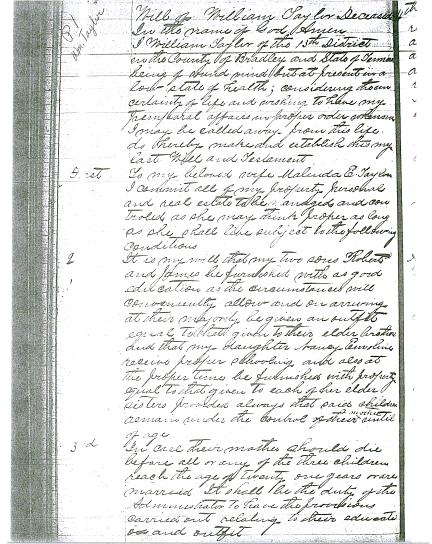 P1
Wm Taylor
Will of William Taylor Deceased
In the name of God, Amen
I William Taylor of the 13th District
in the County of Bradley and State of Tennes
being of sound mind but at present in a
low state of health; considering the un
certainty of life and wishing to have my
temporal affairs in proper order whenever
I may be called away from this life
do thereby make and establish this my
Last Will and Testament
First To my beloved wife Malinda E Taylor
I commit all of my property personal
and real estate to be managed and con
troled as she may think proper as long
as she shall live subject to the following
conditions
2 It is my will that my two sons Robert
and James be furnished with as good
education as the circumstances will
conveniently allow and on arriving
at their majority be given an outfit
equal to that given to their elder brother
and that my daughter Nancy Emoline
receive proper schooling and also at
the proper time be furnished with property
equal to that given to each of her elder
sisters provided always that said children
remain under the control of their mother until
of age
3d In case their mother should die
before all or any of the three children
reach the age of twenty one years or are
married It shall be the duty of the
Administrator to have the provisions
carried out relating to their educati
on and outfit